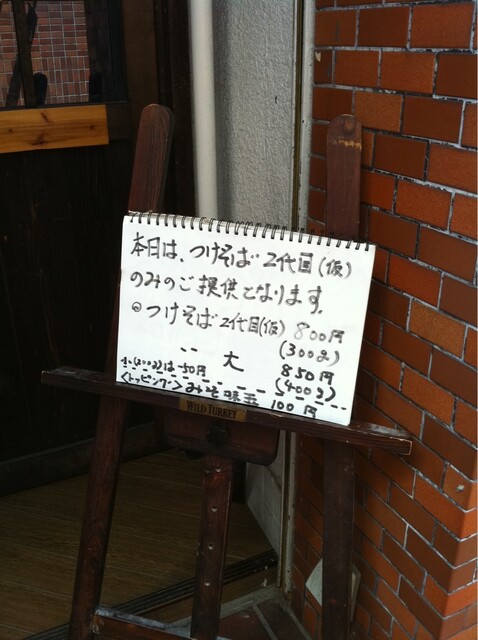 本日は、つけそば2代目(仮)
のみのご提供となります。
◎つけそば2代目(仮) 800円
(300g)
〃 大 850円
小(200g)は-50円 (400g)
<トッピング>みそ味玉 100円
WILD TURKEY